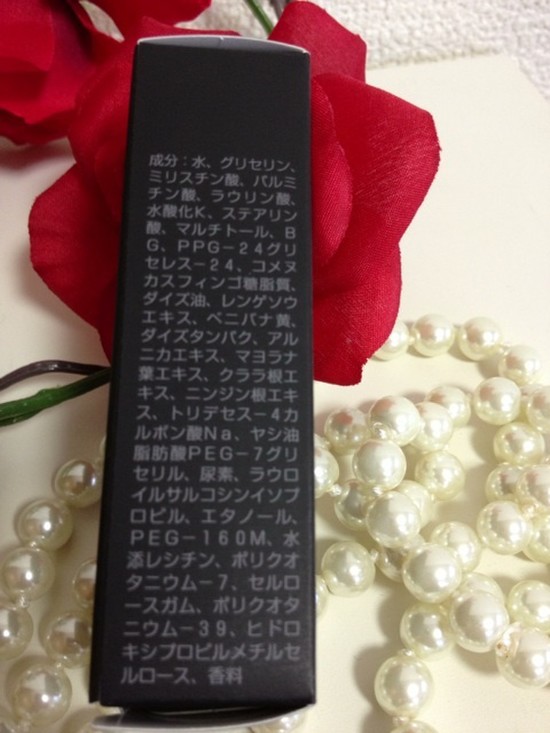 成分：水、グリセリン、
ミリスチン酸、パルミ
チン酸、ラウリン酸、
水酸化K、ステアリン
酸、マルチトール、B
G、PPG－24グリ
セレス－24、コメヌ
カスフィンゴ糖脂質、
ダイズ油、レンゲソウ
エキス、ベニバナ黄、
ダイズタンパク、アル
ニカエキス、マヨラナ
葉エキス、クララ根エ
キス、ニンジン根エキ
ス、トリデセス－4カ
ルボン酸Na、ヤシ油
脂肪酸PEG－7グリ
セリル、尿素、ラウロ
イルサルコシンイソプ
ロピル、エタノール、
PEG－160M、水
添レシチン、ポリクオ
タニウム－7、セルロ
ースガム、ポリクオタ
ニウム－39、ヒドロ
キシプロピルメチルセ
ルロース、香料